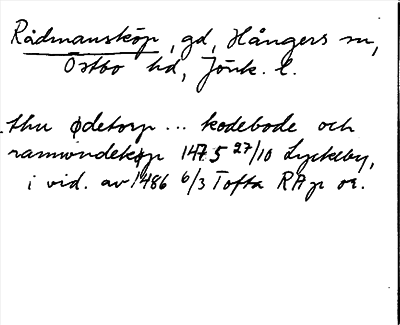 Rådmansköp, gd, Hångers sn,
Östbo hd, Jönk. l.
thu ødetorp ... kodebode och
ramwndekøp 1475 27/10 Lyckeby,
i vid. av 1486 6/3 Tofta RAp or.